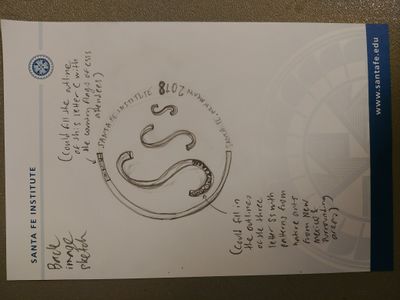 SANTA FE INSTITUTE
www.santafe.edu
Back
image
sketch
(Could fill the outline
of this letter C with
the country flags of CSSS
attendees)
SANTA FE INSTITUTE
2018
S
S
S
(Could fill in
the outlines
of the three
letter Ss with
patterns from
native arts
from New
Mexico &
surrounding
areas)